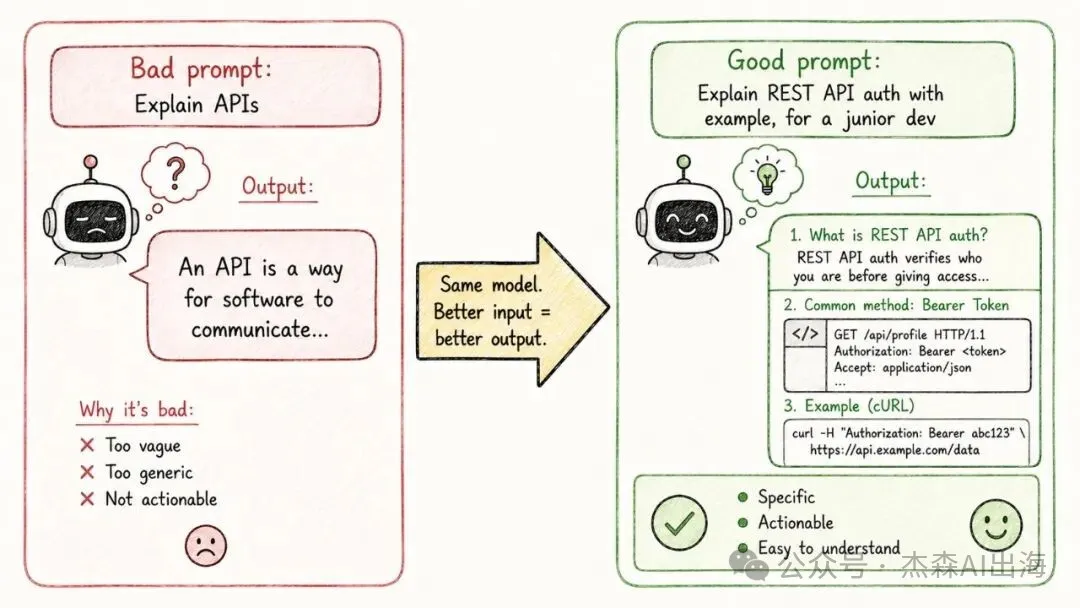 Bad prompt:
Explain APIs
?
Output:
An API is a way
for software to
communicate...
Why it's bad:
✗ Too vague
✗ Too generic
✗ Not actionable
Same model.
Better input =
better output.
Good prompt:
Explain REST API auth with
example, for a junior dev
Output:
1. What is REST API auth?
REST API auth verifies who
you are before giving access...
2. Common method: Bearer Token
</>
GET /api/profile HTTP/1.1
Authorization: Bearer <token>
Accept: application/json
...
3. Example (cURL)
curl -H "Authorization: Bearer abc123" \
https://api.example.com/data
● Specific
● Actionable
● Easy to understand
公众号 · 杰森AI出海